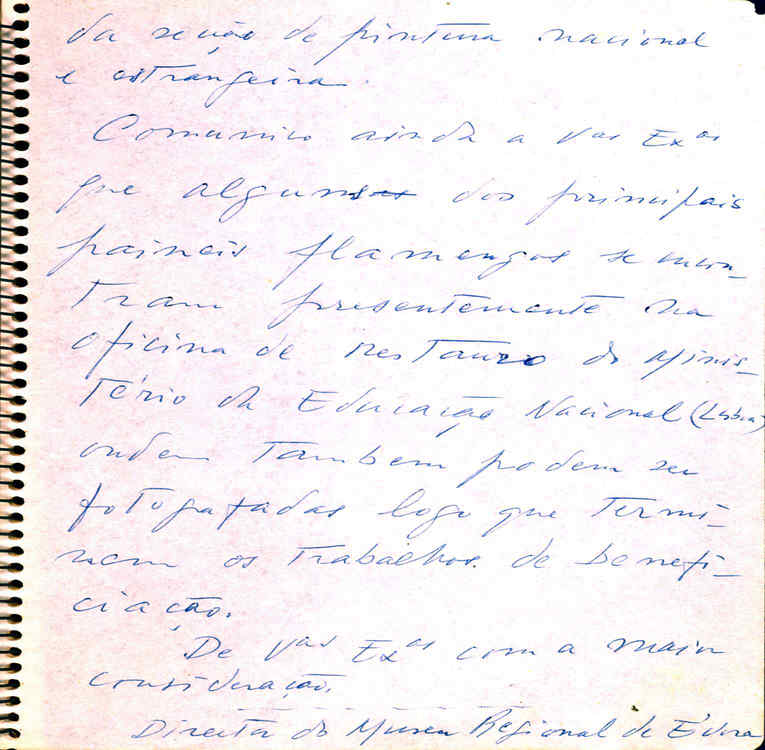 da secção de pintura nacional
e estrangeira.
Comunico ainda a Vas Exas
que alguns dos principais
paineis flamengos se encon-
tram presentemente na
oficina de restauro do Minis-
tério da Educação Nacional (Lisboa)
ondem tambem podem ser
fotografadas logo que termi-
nem os trabalhos de benefi-
ciação.
De Vas Exas com a maior
consideração.
Director do Museu Regional de Évora